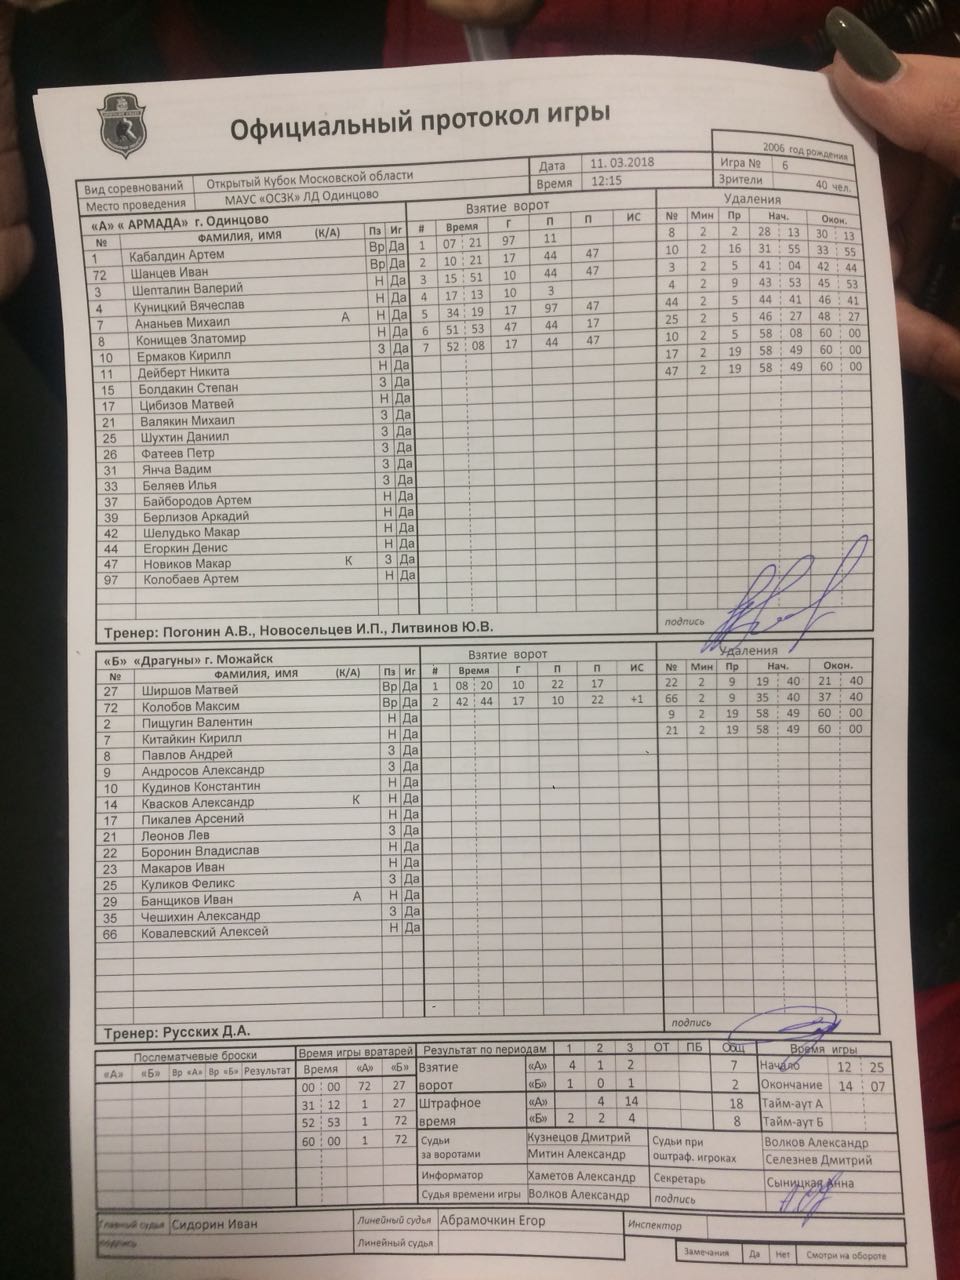 Официальный протокол игры
2006 год рождения
Вид соревнований Открытый Кубок Московской области Дата 11. 03.2018 Игра № 6
Место проведения МАУС «ОСЗК» ЛД Одинцово Время 12:15 Зрители 40 чел.
«А» « АРМАДА» г. Одинцово Взятие ворот Удаления
№ ФАМИЛИЯ, ИМЯ (К/А) Пз Иг # Время Г П П ИС № Мин Пр Нач. Окон.
1 Кабалдин Артем Вр Да 1 07 21 97 11 8 2 2 28 13 30 13
72 Шанцев Иван Вр Да 2 10 21 17 44 47 10 2 16 31 55 33 55
3 Шепталин Валерий Н Да 3 15 51 10 44 47 3 2 5 41 04 42 44
4 Куницкий Вячеслав Н Да 4 17 13 10 3 4 2 9 43 53 45 53
7 Ананьев Михаил А Н Да 5 34 19 17 97 47 44 2 5 44 41 46 41
8 Конищев Златомир Н Да 6 51 53 47 44 17 25 2 5 46 27 48 27
10 Ермаков Кирилл З Да 7 52 08 17 44 47 10 2 5 58 08 60 00
11 Дейберт Никита Н Да 17 2 19 58 49 60 00
15 Болдакин Степан З Да 47 2 19 58 49 60 00
17 Цибизов Матвей Н Да
21 Валякин Михаил З Да
25 Шухтин Даниил З Да
26 Фатеев Петр З Да
31 Янча Вадим З Да
33 Беляев Илья З Да
37 Байбородов Артем Н Да
39 Берлизов Аркадий Н Да
42 Шелудько Макар Н Да
44 Егоркин Денис Н Да
47 Новиков Макар К З Да
97 Колобаев Артем Н Да
Тренер: Погонин А.В., Новосельцев И.П., Литвинов Ю.В. подпись
«Б» «Драгуны» г. Можайск Взятие ворот Удаления
№ ФАМИЛИЯ, ИМЯ (К/А) Пз Иг # Время Г П П ИС № Мин Пр Нач. Окон.
27 Ширшов Матвей Вр Да 1 08 20 10 22 17 22 2 9 19 40 21 40
72 Колобов Максим Вр Да 2 42 44 17 10 22 +1 66 2 9 35 40 37 40
2 Пищугин Валентин Н Да 9 2 19 58 49 60 00
7 Китайкин Кирилл Н Да 21 2 19 58 49 60 00
8 Павлов Андрей З Да
9 Андросов Александр З Да
10 Кудинов Константин Н Да
14 Квасков Александр К Н Да
17 Пикалев Арсений Н Да
21 Леонов Лев З Да
22 Боронин Владислав Н Да
23 Макаров Иван Н Да
25 Куликов Феликс З Да
29 Банщиков Иван А Н Да
35 Чешихин Александр З Да
66 Ковалевский Алексей Н Да
Тренер: Русских Д.А. подпись
Послематчевые броски Время игры вратарей Результат по периодам 1 2 3 ОТ ПБ Общ Время игры
«А» «Б» Вр «А» Вр «Б» Результат Время «А» «Б» Взятие «А» 4 1 2 7 Начало 12 25
00 00 72 27 ворот «Б» 1 0 1 2 Окончание 14 07
31 12 1 27 Штрафное «А» 4 14 18 Тайм-аут А
52 53 1 72 время «Б» 2 2 4 8 Тайм-аут Б
60 00 1 72 Судьи за воротами Кузнецов Дмитрий Судьи при оштраф. игроках Волков Александр
Митин Александр Селезнев Дмитрий
Информатор Хаметов Александр Секретарь Сыницкая Анна
Судья времени игры Волков Александр подпись
Главный судья Сидорин Иван Линейный судья Абрамочкин Егор Инспектор
подпись Линейный судья
Замечания Да Нет Смотри на обороте